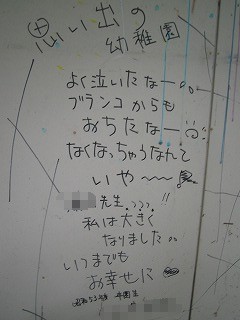 思い出の
幼稚園
よく泣いたなー。。
ブランコからも
おちたなー
なくなっちゃうなんて
いや〜〜
先生、、、、!!
私は大きく
なりました。。
いつまでも
お幸せに
昭和53年 卒園生